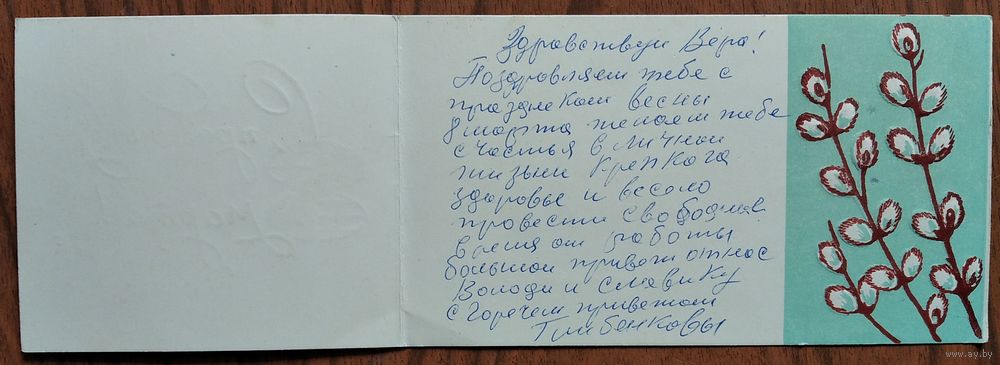 Здравствуй Вера!
Поздровляем тебе с
празднеком весны
8 марта желаем тебе
счастья в личной
жизни крепкога
здоровье и весоло
провести свободнае
время от работы
большой привет от нас
Володи и Славику
с горечем приветом
www.ay.by